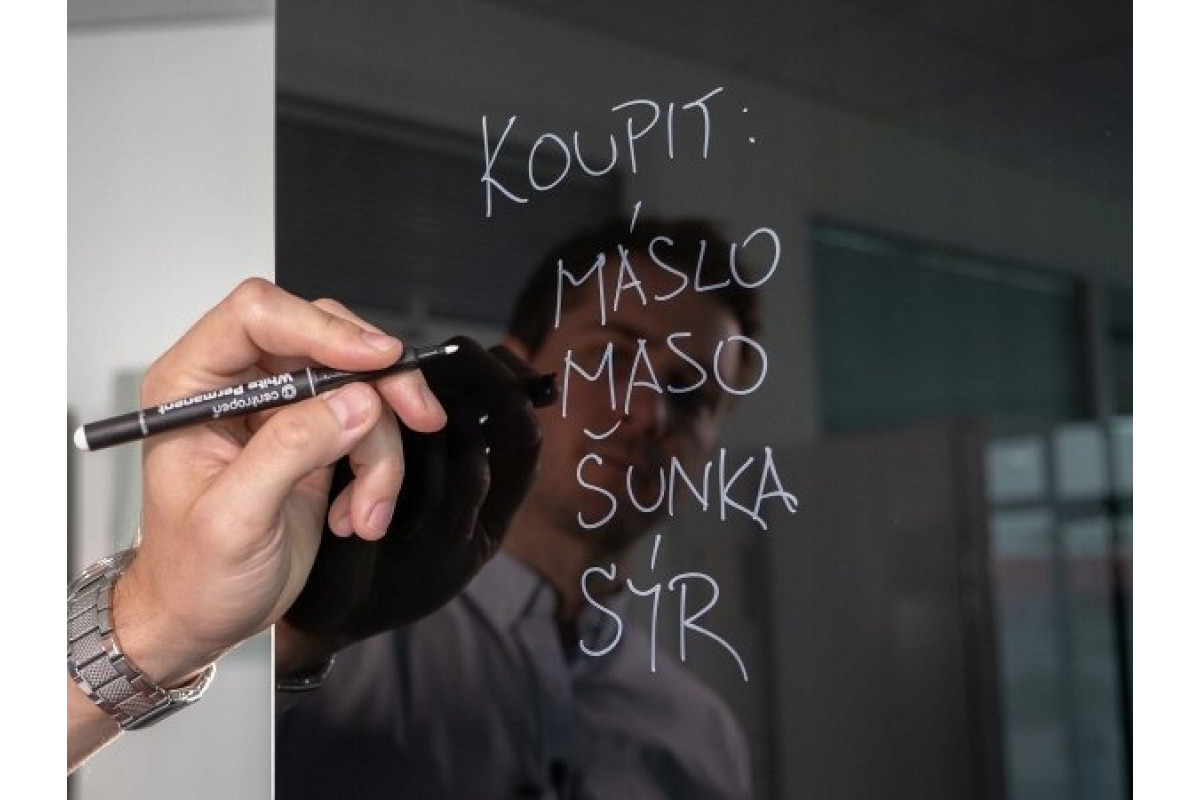 KOUPIT:
MÁSLO
MASO
ŠUNKA
SÝR
centropen
White Permanent